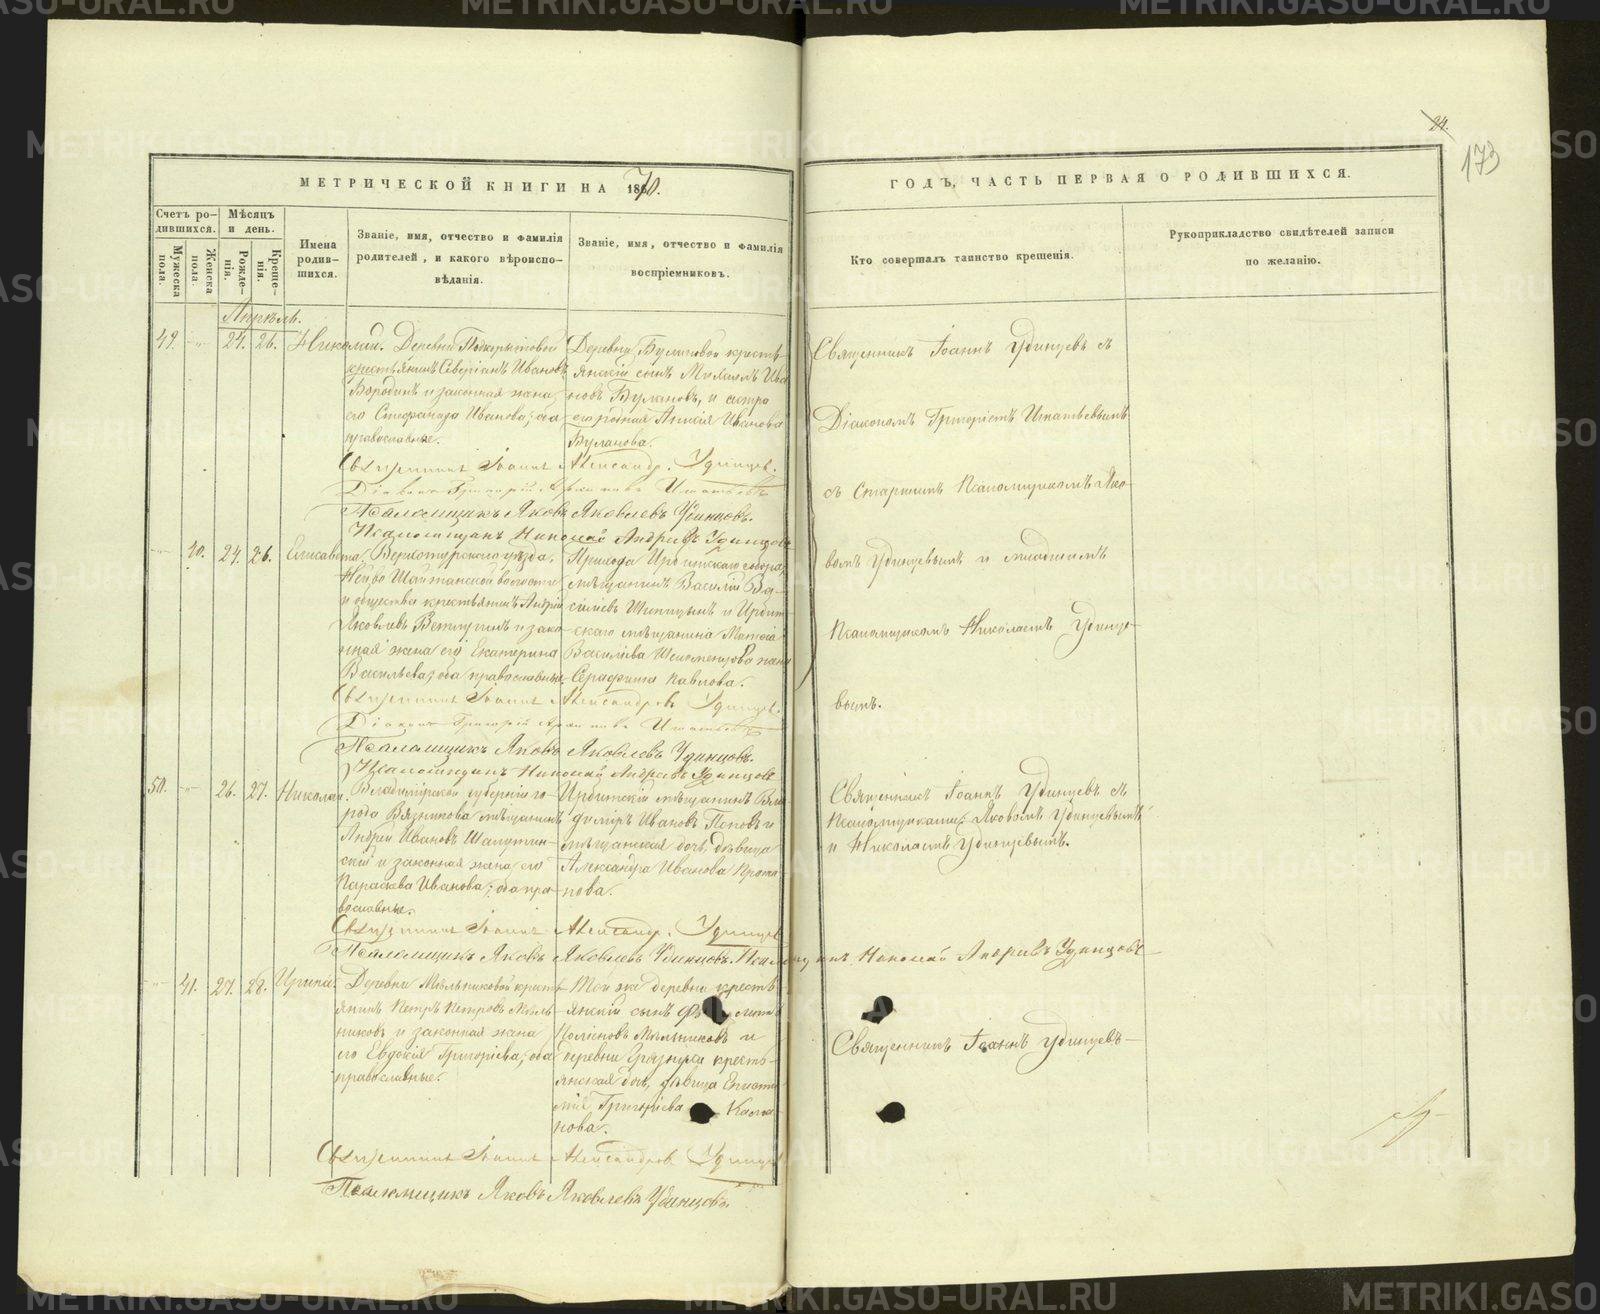 24.
173
МЕТРИЧЕСКОЙ КНИГИ НА 1870.
ГОДЪ, ЧАСТЬ ПЕРВАЯ О РОДИВШИХСЯ.
Счетъ ро-
дившихся.
Мѣсяцъ
и день.
Мужеска
пола.
Женска
пола.
Рожде-
нія.
Креще-
нія.
Имена
родив-
шихся.
Званіе, имя, отчество и фамилія
родителей, и какого вѣроиспо-
вѣданія.
Званіе, имя, отчество и фамилія
воспріемниковъ.
Кто совершалъ таинство крещенія.
Рукоприкладство свидѣтелей записи
по желанію.
Апрѣль.
49. 24. 26. Николай.
Деревни
крестьянинъ Севиріанъ Ивановъ
Бородинъ и законная жена
его Стефанида Иванова; оба
православные.
Деревни Булановой кресть-
янскій сынъ Ива-
новъ Булановъ, и сестра
его родная Иванова
Буланова.
Священникъ Іоаннъ Удинцевъ съ
Діакономъ Григоріемъ Игнатьевымъ
съ Старшимъ Псаломщикомъ Яко-
вомъ Удинцевымъ и младшимъ
Псаломщикомъ Николаемъ Удинце-
вымъ.
Священникъ Іоаннъ Александр. Удинцев.
Діаконъ Григорій Игнатьевъ
Псаломщикъ Яковъ Яковлевъ Удинцовъ.
Псаломщикъ Николай Андреевъ Удинцовъ
40. 24. 26. Елисавета.
Верхотурскаго уѣзда,
Нейво Шайтанской волости
и общества крестьянинъ Андрей
Яковлевъ Ветлугинъ и зако-
нная жена его Екатерина
Васильева; оба православные.
Прихода Ирбитскаго собора,
мѣщанинъ Василій Ва-
сильевъ Шипицынъ и Ирбит-
скаго мѣщанина
Васильева жена
Серафима Павлова.
Священникъ Іоаннъ Александровъ Удинцев.
Діаконъ Григорій Игнатьевъ
Псаломщикъ Яковъ Яковлевъ Удинцовъ.
Псаломщикъ Николай Андреевъ Удинцовъ
50. 26. 27. Николай.
Владимірской губерніи го-
рода Вязникова мѣщанинъ
Андрей Ивановъ
и законная жена его
Параскева Иванова; оба пра-
вославные.
Ирбитскій мѣщанинъ Вла-
диміръ Ивановъ Поповъ и
мѣщанская дочь, дѣвица
Александра Иванова
Священникъ Іоаннъ Удинцевъ съ
Псаломщиками: Яковомъ Удинцевымъ
и Николаемъ Удинцевымъ.
Священникъ Іоаннъ Александр. Удинцев
Псаломщикъ Яковъ Яковлевъ Удинцовъ. Псаломщикъ Николай Андреевъ Удинцовъ
41. 27. 28. Ирина.
Деревни Мельниковой кресть-
янинъ Петръ Петровъ Мель-
никовъ и законная жена
его Евдокія Григорьева; оба
православные.
Той же деревни кресть-
янскій сынъ
Мельниковъ и
деревни кресть-
янская дочь, дѣвица
Григорьева
Священникъ Іоаннъ Удинцевъ
Священникъ Іоаннъ Александровъ Удинцев
Псаломщикъ Яковъ Яковлевъ Удинцовъ
METRIKI.GASO-URAL.RU